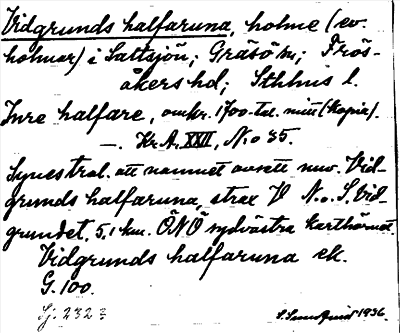 Vidgrunds halfaruna, holme (ev.
holmar) i Saltsjön; Gräsö sn; Frös-
åkers hd; Sthlms l.
Inre halfare, omkr. 1700-tal. mitt (kopia).
—. Kr. A. XXII, No 35.
Synes tral. att namnet avsett nuv. Vid-
grunds halfaruna, strax V N. o. S. Vid-
grundet, 5.1 km. ÖNÖ sydvästra karthörnet.
Vidgrunds halfaruna ek.
G. 100.
Sj. 232
1936.